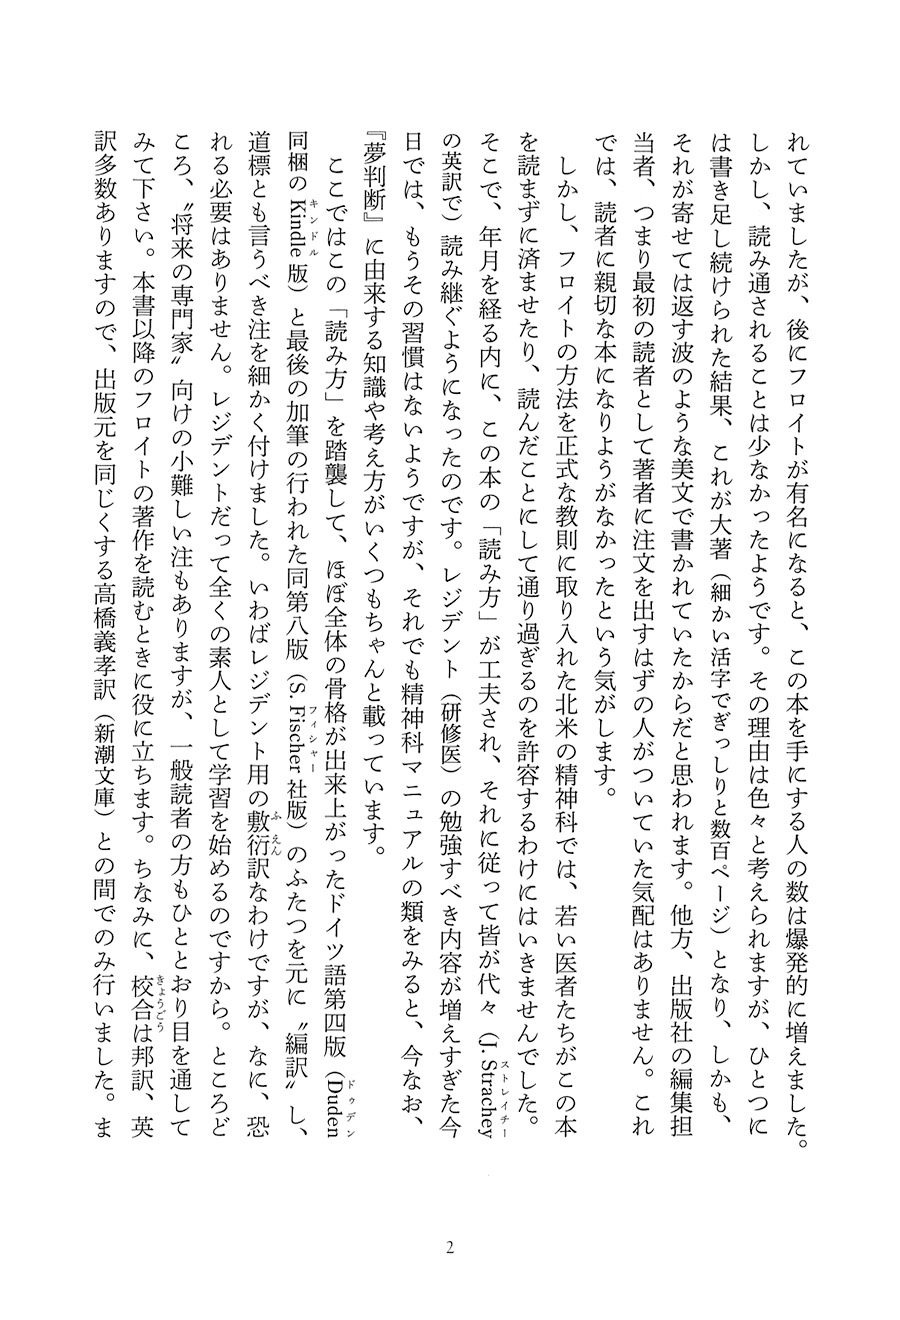 れていましたが、後にフロイトが有名になると、この本を手にする人の数は爆発的に増えました。
しかし、読み通されることは少なかったようです。その理由は色々と考えられますが、ひとつに
は書き足し続けられた結果、これが大著（細かい活字でぎっしりと数百ページ）となり、しかも、
それが寄せては返す波のような美文で書かれていたからだと思われます。他方、出版社の編集担
当者、つまり最初の読者として著者に注文を出すはずの人がついていた気配はありません。これ
では、読者に親切な本になりようがなかったという気がします。
　しかし、フロイトの方法を正式な教則に取り入れた北米の精神科では、若い医者たちがこの本
を読まずに済ませたり、読んだことにして通り過ぎるのを許容するわけにはいきませんでした。
そこで、年月を経る内に、この本の「読み方」が工夫され、それに従って皆が代々（J. Strachey ストレイチー
の英訳で）読み継ぐようになったのです。レジデント（研修医）の勉強すべき内容が増えすぎた今
日では、もうその習慣はないようですが、それでも精神科マニュアルの類をみると、今なお、
『夢判断』に由来する知識や考え方がいくつもちゃんと載っています。
　ここではこの「読み方」を踏襲して、ほぼ全体の骨格が出来上がったドイツ語第四版（Duden ドゥデン
同梱の Kindle キンドル 版）と最後の加筆の行われた同第八版（S. Fischer フィシャー 社版）のふたつを元に〝編訳〟し、
道標とも言うべき注を細かく付けました。いわばレジデント用の敷衍 ふえん 訳なわけですが、なに、恐
れる必要はありません。レジデントだって全くの素人として学習を始めるのですから。ところど
ころ、〝将来の専門家〟向けの小難しい注もありますが、一般読者の方もひととおり目を通して
みて下さい。本書以降のフロイトの著作を読むときに役に立ちます。ちなみに、校合 きょうごう は邦訳、英
訳多数ありますので、出版元を同じくする高橋義孝訳（新潮文庫）との間でのみ行いました。ま
2